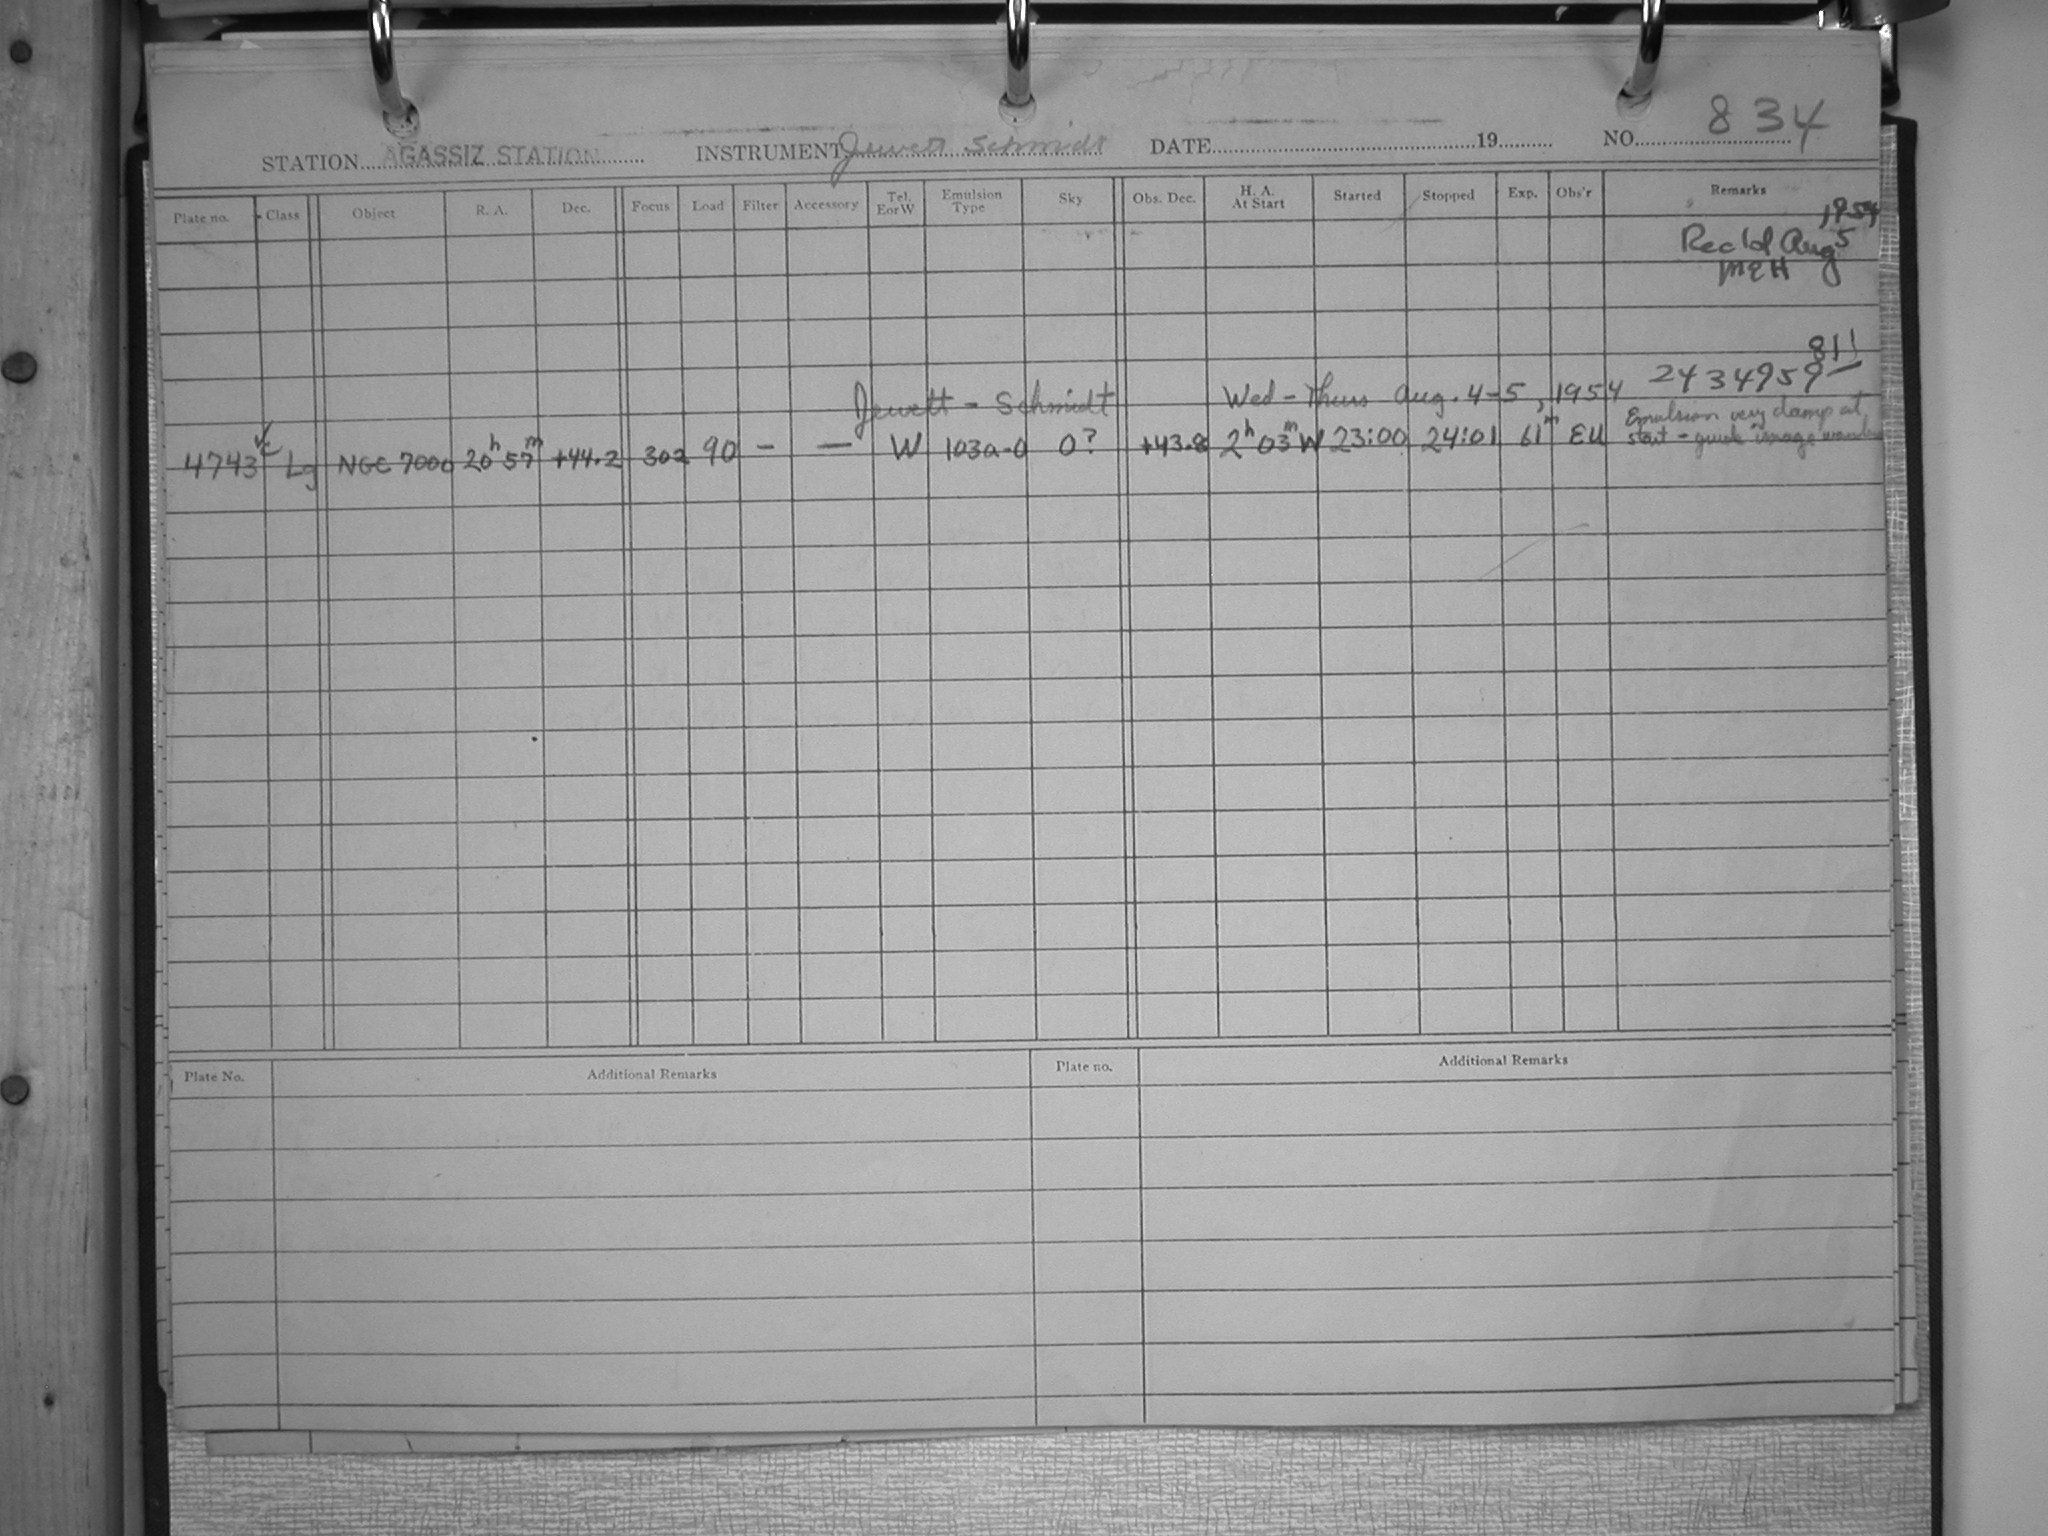 834
STATION AGASSIZ STATION INSTRUMENT Jewett Schmidt DATE 19 NO.
Plate no. Class Object R. A. Dec. Focus Load Filter Accessory Tel. E or W Emulsion Type Sky Obs. Dec. H. A. At Start Started Stopped Exp. Obs'r Remarks
1954
Rec'd Aug 5
MEH
811
Jewett - Schmidt Wed - Thurs Aug. 4-5, 1954 2434959
4743 Lg NGC 7000 20h 57m +44.2 302 90 - — W 103a-O 0? +43.8 2h 03m W 23:00 24:01 61m EU Emulsion very damp at
start - guide image
Plate No. Additional Remarks Plate no. Additional Remarks